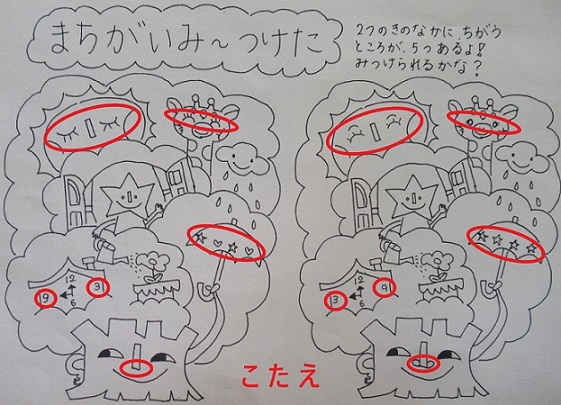 まちがいみ〜つけた
2つのきのなかに、ちがう
ところが、5つあるよ!
みつけられるかな?
12
9 3
6
12
3 9
6
こたえ